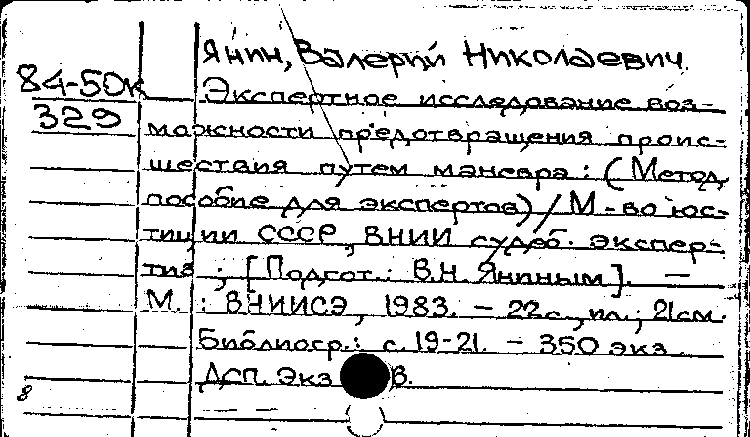 Янин, Валерий Николаевич.
84-50к Экспертное исследование воз-
329 можности предотвращения проис-
шествия путем маневра : (Метод.
пособие для экспертов) / М-во юс-
тиции СССР, ВНИИ судеб. экспер-
тиз ; [Подгот.: В.Н. Яниным]. —
М. : ВНИИСЭ, 1983. - 22с., ил.; 21см.
Библиогр.: с. 19-21. - 350 экз.
ДСП. Экз В.
8